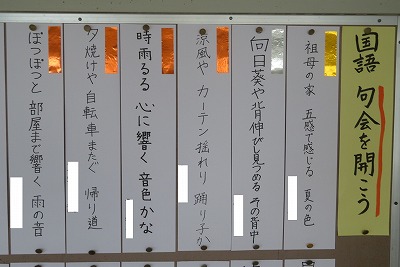 国語 句会を開こう
祖母の家 五感で感じる 夏の色
向日葵や 背伸びし見つめる その背中
涼風や カーテン揺れり 踊り子か
時雨るる 心に響く 音色かな
夕焼けや 自転車またぐ 帰り道
ぽつぽつと 部屋まで響く 雨の音